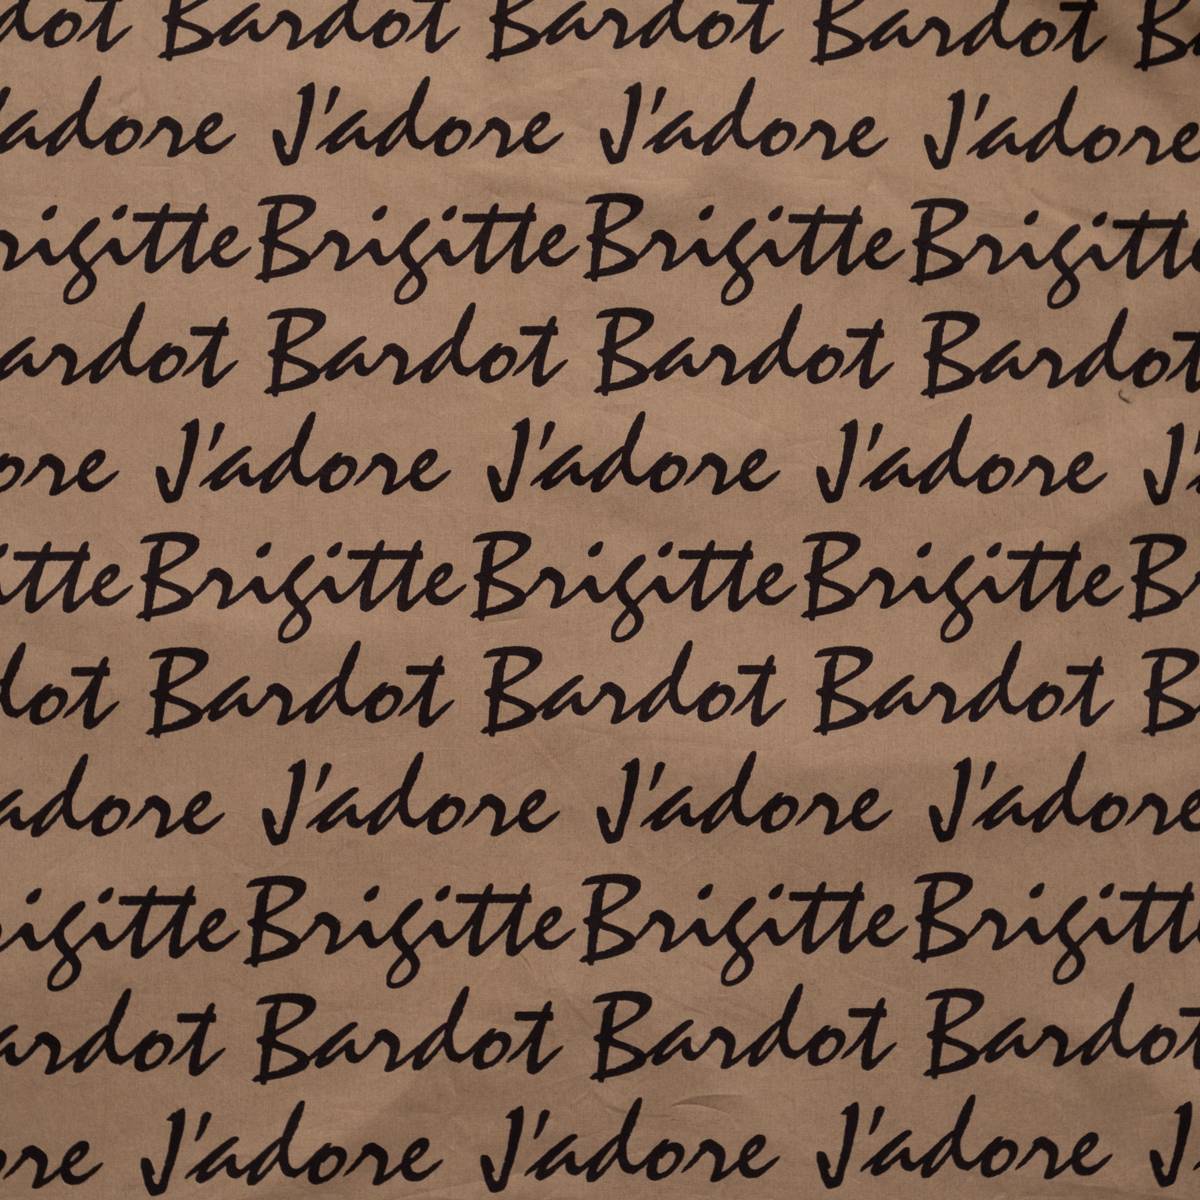 dot Bardot Bardot Bardot Ba
'adore J'adore J'adore J'adore
rigitte Brigitte Brigitte Brigitt
ardot Bardot Bardot Bardot
ore J'adore J'adore J'adore J'
itte Brigitte Brigitte Brigitte Br
dot Bardot Bardot Bardot B
adore J'adore J'adore J'adore
rigitte Brigitte Brigitte Brigitt
ardot Bardot Bardot Bardot
ore J'adore J'adore J'adore J'